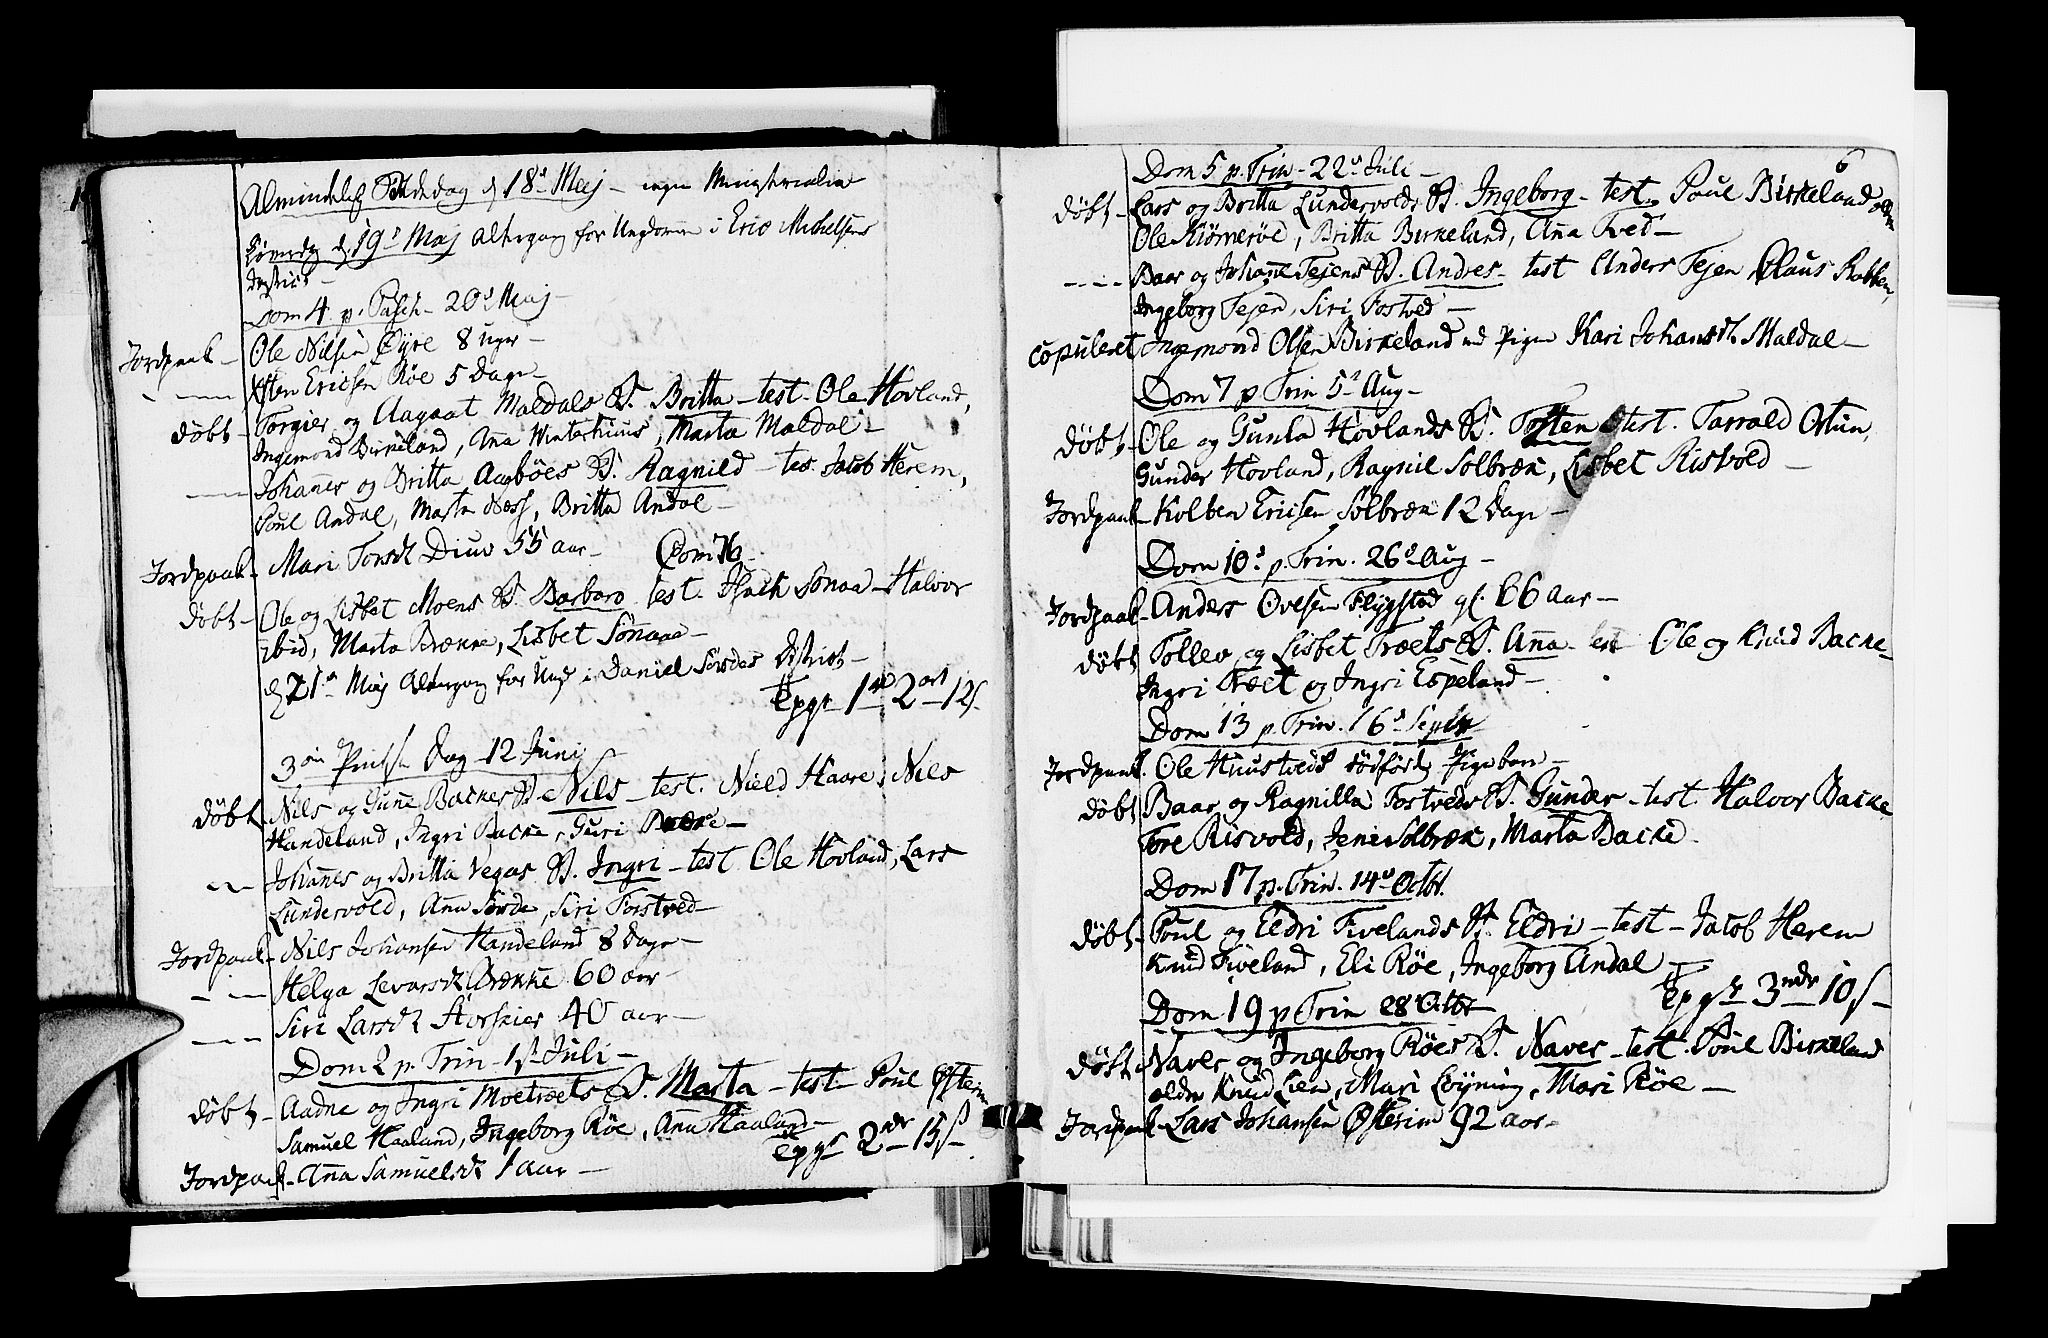 Almindelig Bededag d 18d Maj - ingen Ministerialia
Løverdag d 19d Maj Altergang for Ungdomen i Eric Mickelsens
District -
Dom 4. p. Pasch - 20d Maj -
Jordpaak - Ole Nilsen Øyre 8 uger -
- - - Xsten Ericsen Røe 5 Dage -
døbt - Torgier og Aagaat Maldals B. Britta - test. Ole Hovland,
Ingemond Birkeland, Aña Winterhuus, Marta Maldal -
- - - Johañes og Britta Aagbøes B. Ragnild - tes. Jacob Herem,
Poul Andal, Marta Næss, Britta Andal -
Jordpaak - Mari Torsdt Diuv 55 aar - Com 76 -
døbt - Ole og Lisbet Moens B. Barbaro test. Isach Sonaa - Halvor
ibid, Marta Brænne, Lisbet Sonaae -
d 21d Maj Altergang for Ungd i Daniel Sørdes District -
Epgr 1 - 2 ort 12 s.
3die Pintse Dag 12 Juni
døbt Nils og Guñe Backes B. Nils - test. Nield Haare, Nils
Handeland, Ingri Backe, Guri Brække -
- - Johañes og Britta Vegas B. Ingri - test Ole Hovland, Lars
Lundervold, Aña Sørde, Siri Forstved -
Jordpaak - Nils Johansen Handeland 8 Dage -
- - - Helga Levarsdt Brække 60 aar
- - - Siri Larsdt 40 aar -
Dom 2 p. Trin - 1st Juli -
døbt - Aadne og Ingri Moetræets B. Marta - test - Poul Østerim
Samuel Haaland, Ingeborg Røe, Aña Haaland -
Epgr 2 mdr 15 s
Jordpaak - Aña Samuelsdt 1 Aar -
6
Dom 5 p. Trin - 22d Juli -
døbt - Lars og Britta Lundervolds B. Ingeborg - test. Poul Birkeland ældr
Ole Kiørnerøe, Britta Birkeland, Aña Tved -
- - - Baar og Johañe Tejens B. Andres - test Anders Tejen Claus Rabben,
Ingeborg Tejen, Siri Fostved -
copuleret Ingemond Olsen Birkeland med Pigen Kari Johansdt. Maldal -
Dom 7 p Trin 5d Aug -
døbt - Ole og Gunla Hovlands B. Tosten test. Tarrald Østun,
Gunder Hovland, Ragnil Solbræk, Lisbet Risvold -
Jordpaak - Kolben Ericsen Solbræk 12 Dage -
Dom 10d p. Trin. 26d Aug -
Jordpaak - Anders Ovesen Flygstød gl. 66 Aar -
døbt Tollev og Lisbet Træets B. Aña test Ole og Knud Backe -
Ingri Træet og Ingri Espeland -
Dom 13 p. Trin. 16d Septr
Jordpaak. Ole Knustveds dødfødte Pigebarn -
døbt Baar og Ragnilla Fostveds B. Gunder - test. Halvor Backe
Tore Risvold, Jene Solbræk, Marta Backe -
Dom 17 p. Trin. 14d Octbr.
døbt - Poul og Eldri Fivelands B. Eldri - test - Jacob Herem
Knud Fiveland, Eli Røe, Ingeborg Andal -
Epgr 3 mdr 10 s -
Dom 19 p Trin 28 Octbr
døbt - Naver og Ingeborg Røes B. Naver - test. Poul Birkeland
ældre Knud Lien, Mari Løyning, Mari Røe -
Jordpaak - Lars Johansen Østerim 92 aar -